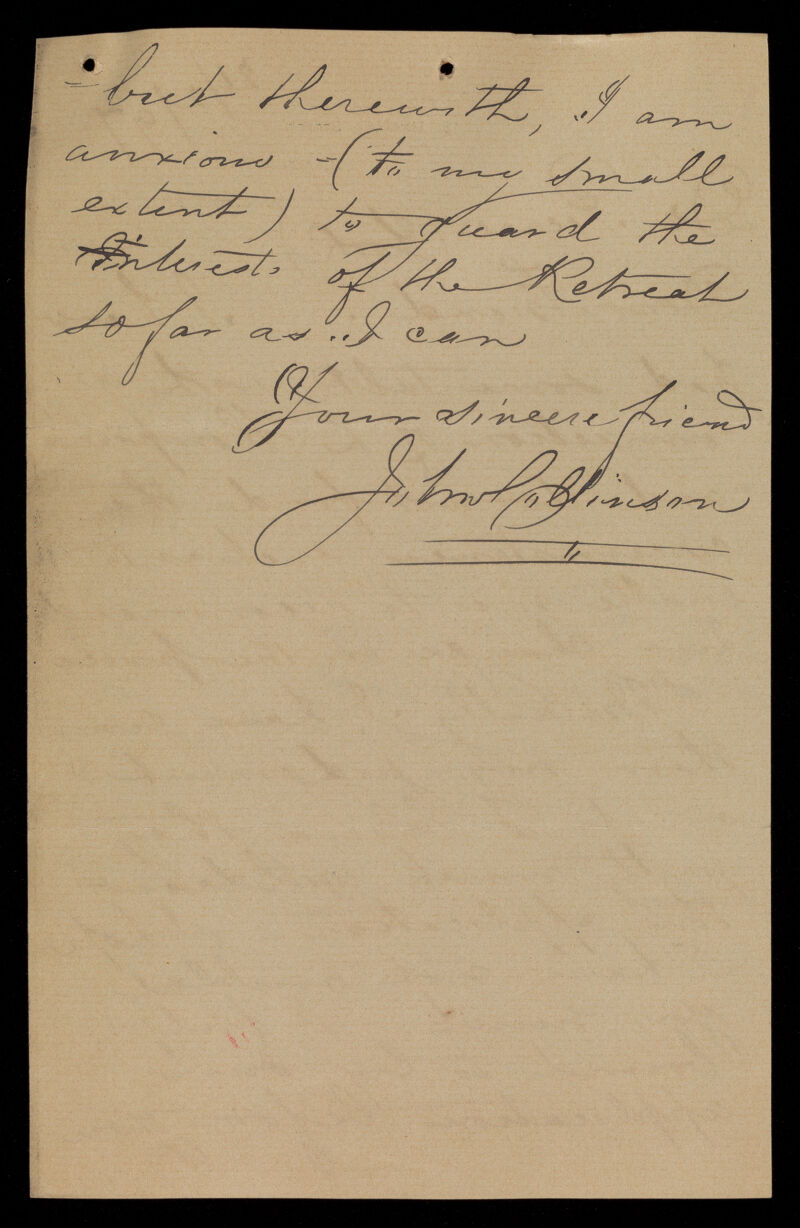 - but therewith, I am
anxious - (to my small
extent) to guard the
Interests of the Retreat
so far as I can
Your sincere friend
John